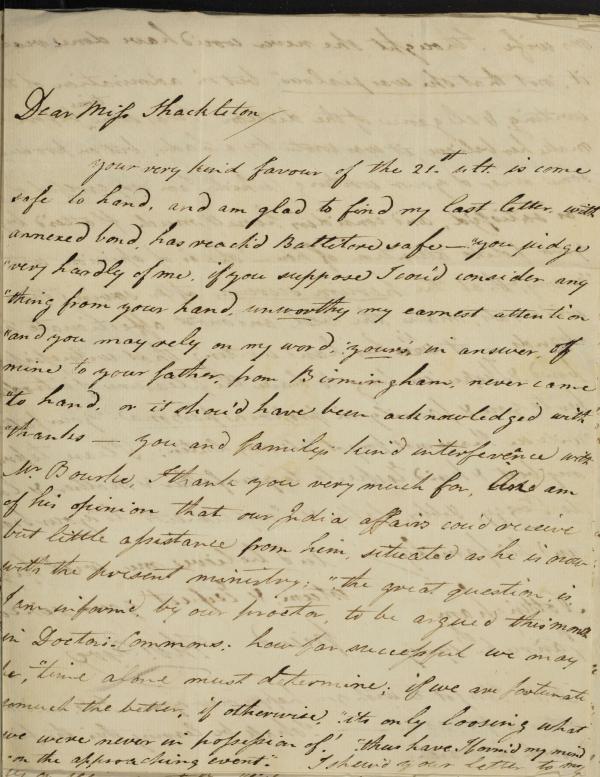 Dear Miss Shackleton/
your very kind favour of the 21st ult. is come
safe to hand, and am glad to find my last letter, with
annexed bond, has reach'd Ballitore safe — "you judge
"very hardly of me, if you suppose I cou'd consider any
"thing from your hand, unworthy my earnest attention
"and you may rely on my word, yours, in answer, of
mine to your father, from Birmingham, never came
"to hand, or it shou'd have been acknowledged with
"thanks — you and family's kind interference with
Mr Bourke, I thank you very much for, And am
of his opinion that our India affairs cou'd receive
but little assistance from him, situated as he is now
with the present ministry: "the great question, is
I am inform'd, by our proctor, to be argued this month
in Doctors-Commons: how far successful we may
be, "time alone must determine; if we are fortunate
so much the better, if otherwise, "its only loosing what
we were never in possession of! "thus have I form'd my mind
"on the approaching event." I shew'd your letter to my